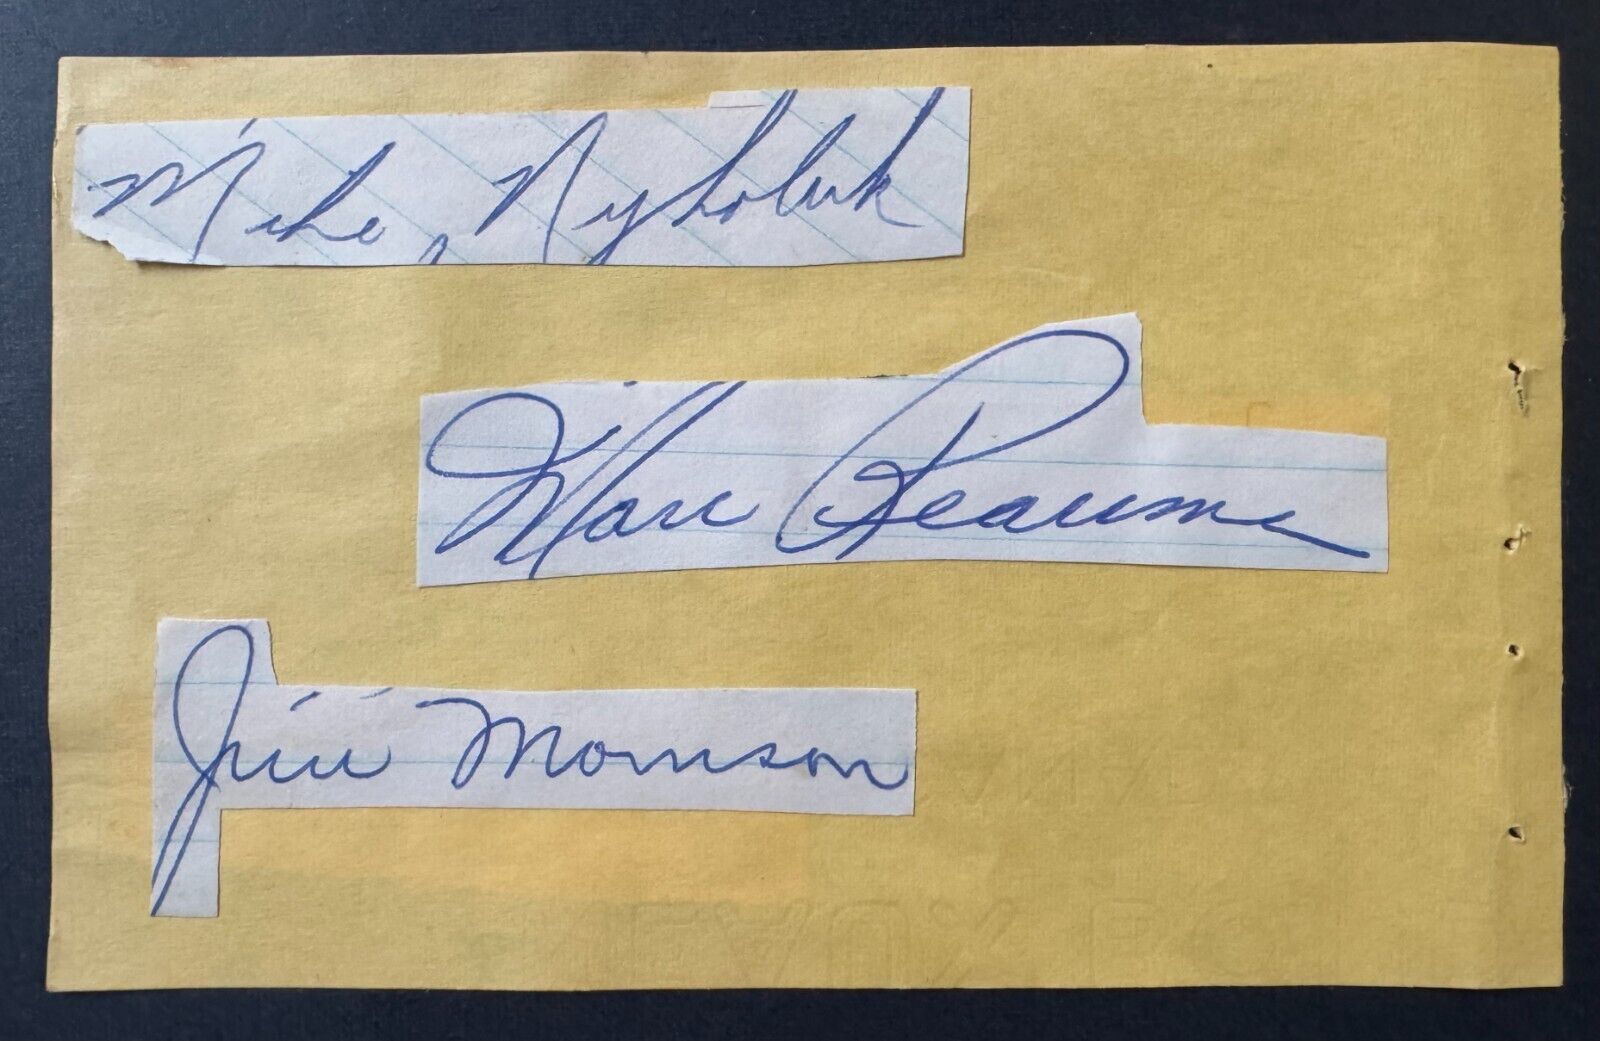 Mike Nykoluk
Marc Reaume
Jim Morrison